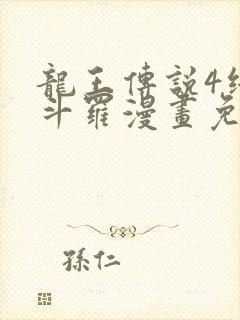 龍王傳說4
斗羅漫畫免
孫仁